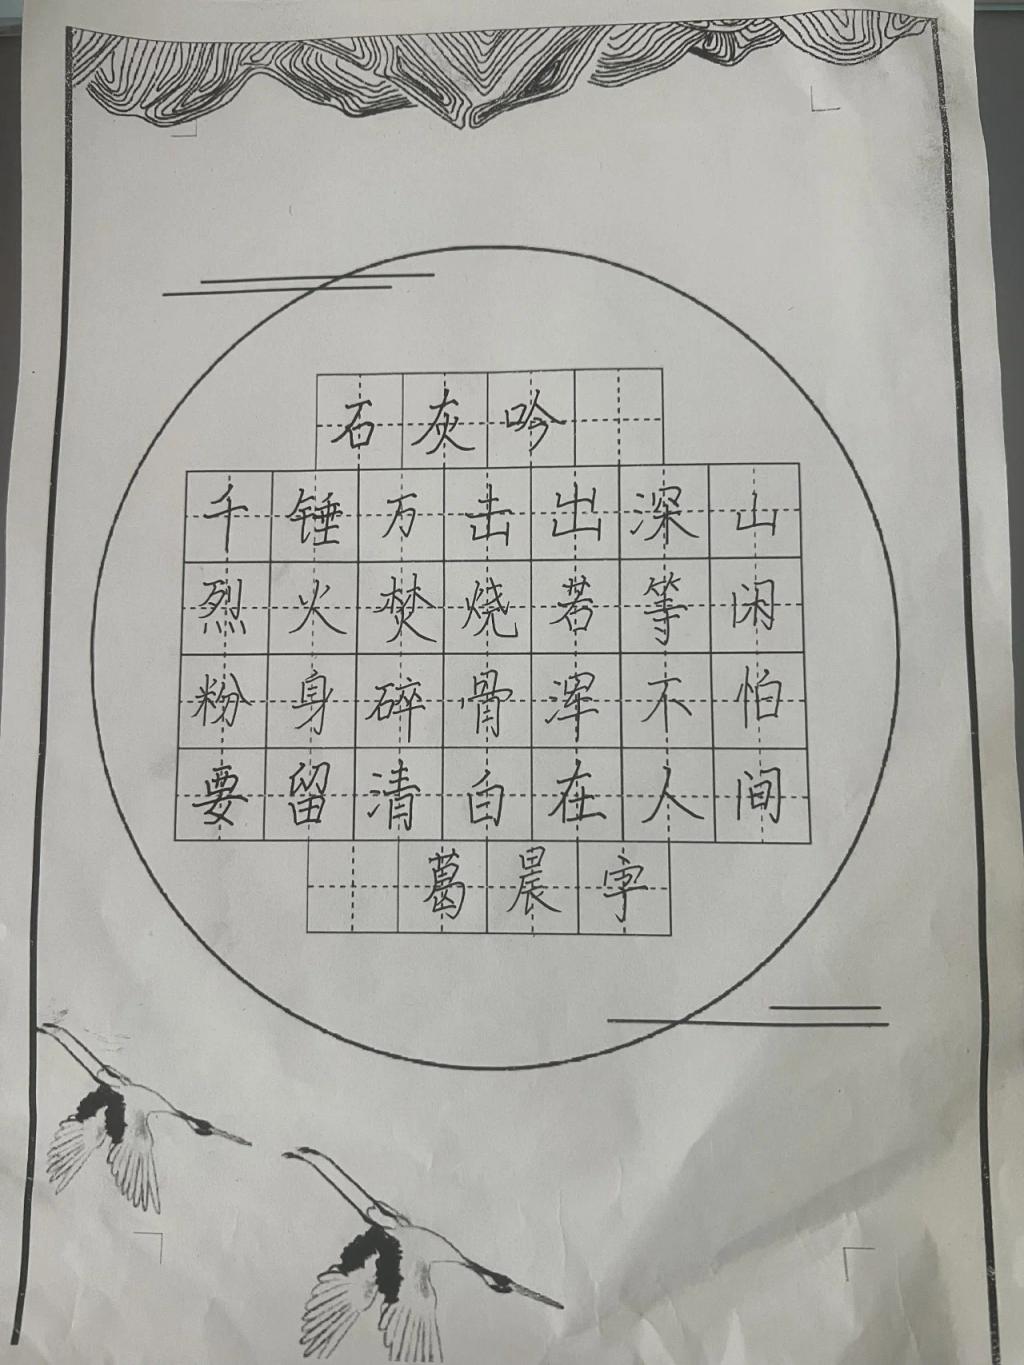 石灰吟
千锤万击出深山
烈火焚烧若等闲
粉身碎骨浑不怕
要留清白在人间
葛晨宇